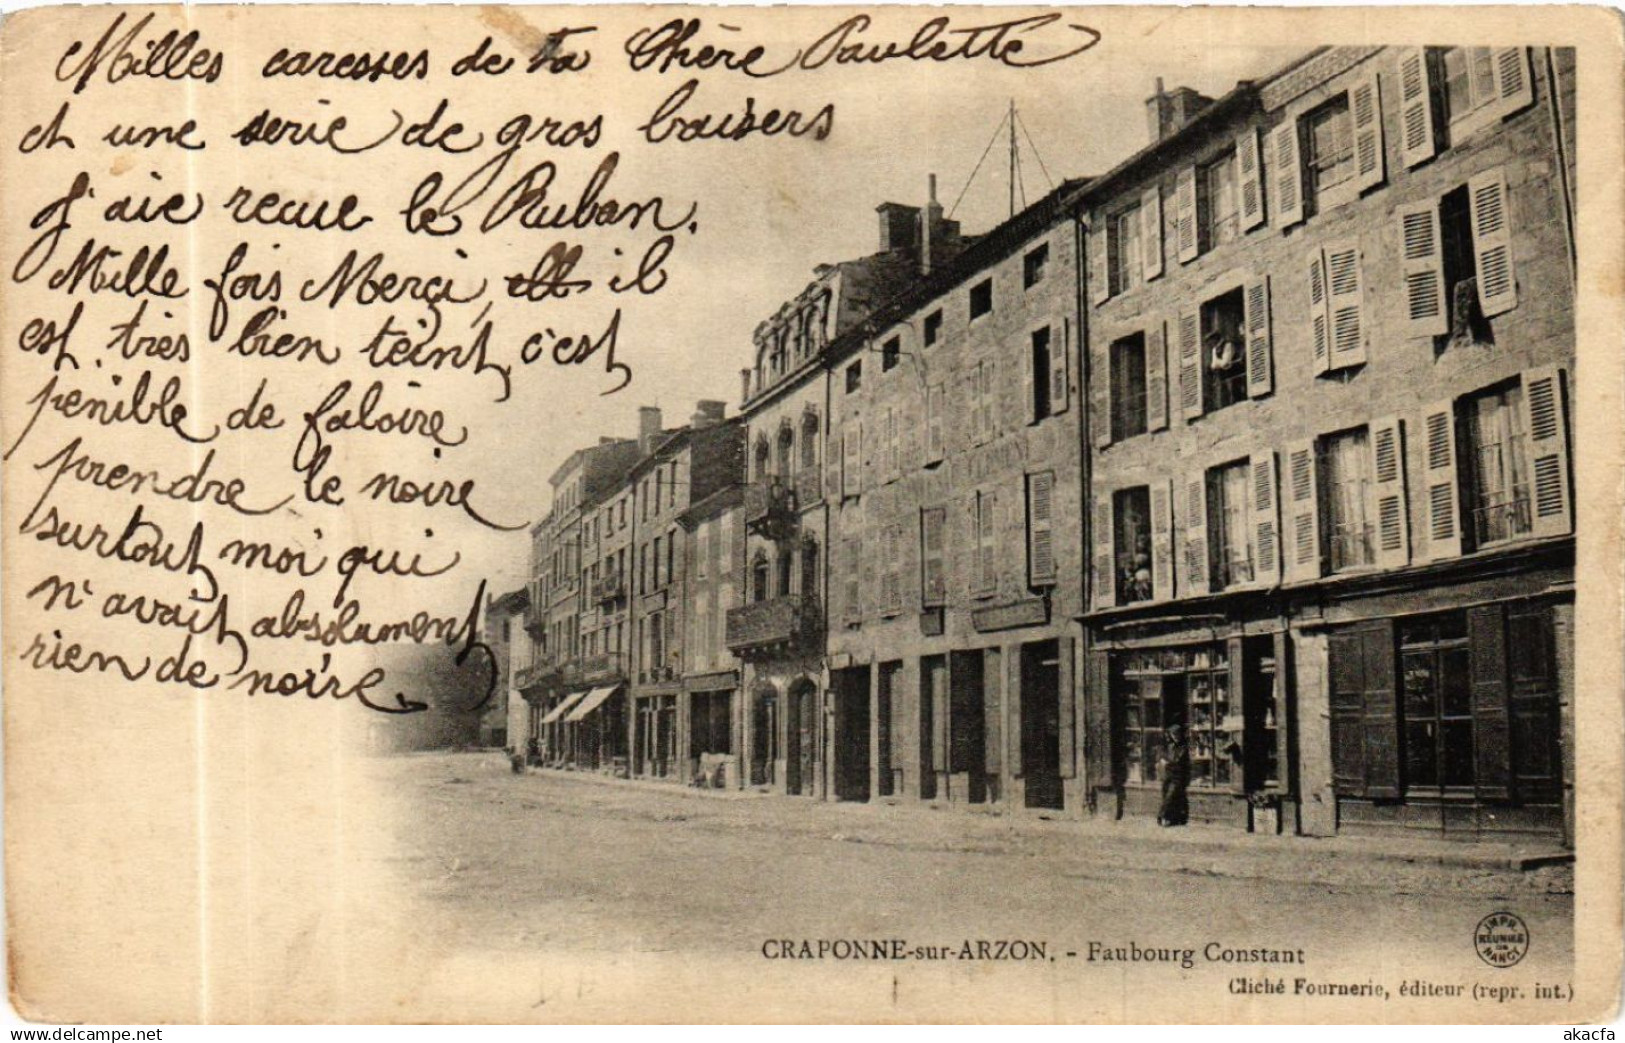 Milles caresses de ta Chère Paulette
et une serie de gros baisers
J'aie recue le Ruban.
Mille fois Merçi, il
est très bien teint, c'est
penible de faloire
prendre le noire
surtout moi qui
n'avait absolument
rien de noire.
CRAPONNE-sur-ARZON. - Faubourg Constant
Cliché Fournerie, éditeur (repr. int.)
IMPR. RÉUNIES DE NANCY
akacfa